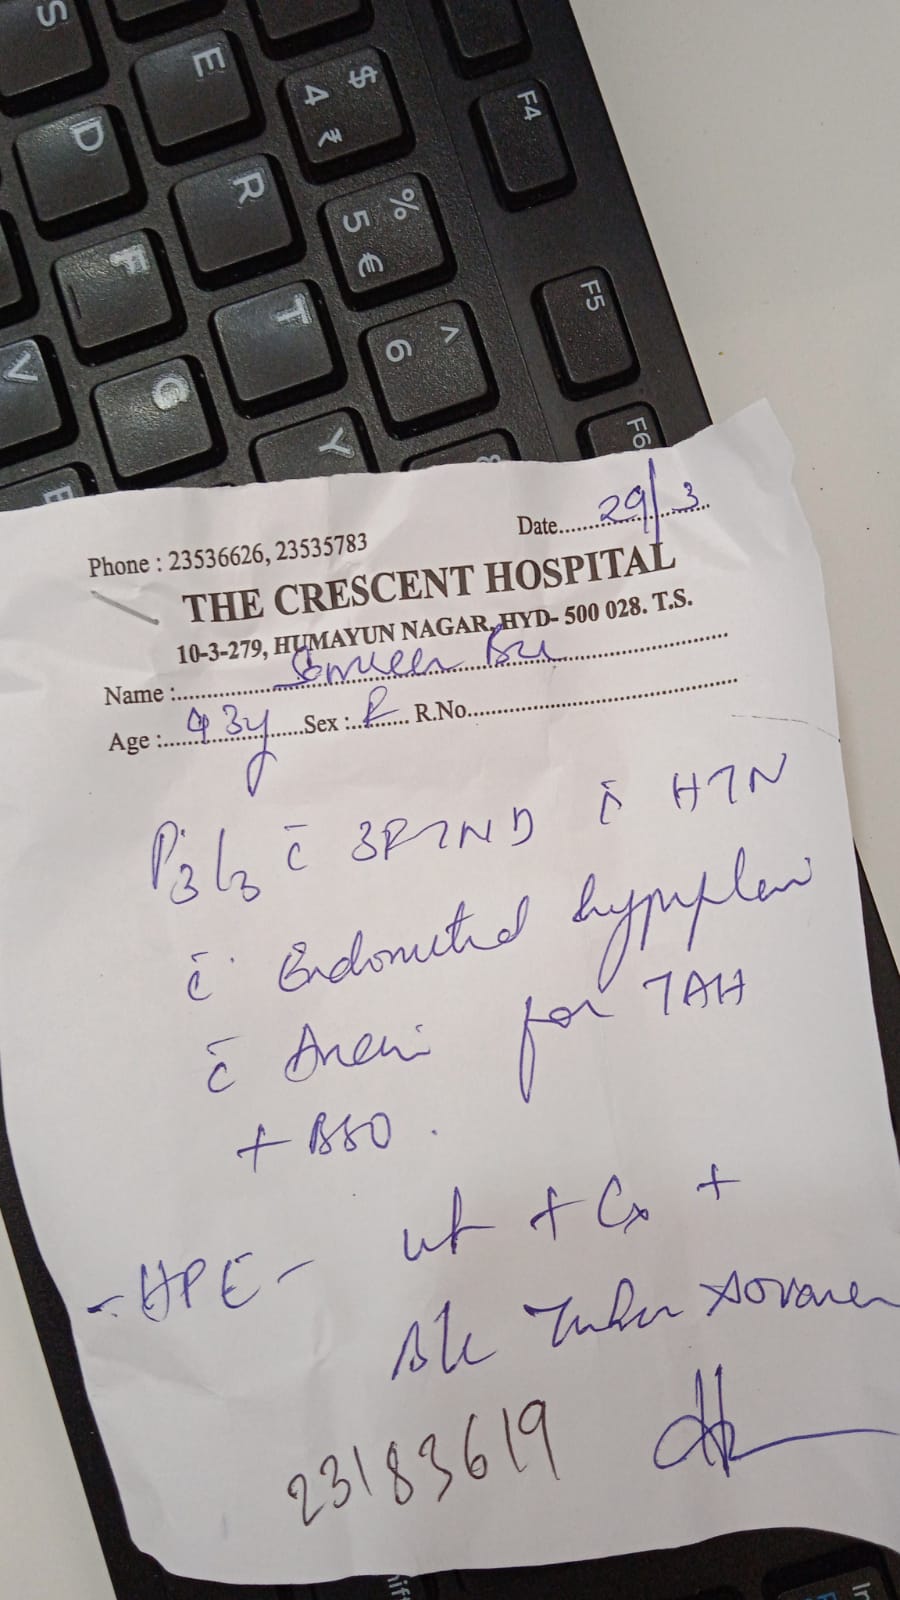 S
E
$
4 ₹
F4
D
R
%
5 €
F
T
^
6
F5
V
G
Y
F6
Date......29/3
Phone : 23536626, 23535783
THE CRESCENT HOSPITAL
10-3-279, HUMAYUN NAGAR, HYD- 500 028. T.S.
Name :
Age : 43y Sex : F R.No.
P3L3 c̄ 3PTND c̄ HTN
c̄ Endometrial hyperplasia
c̄ for TAH
+ BSO.
- HPE - ut + Cx +
B/L Tubes + ovaries
23183619